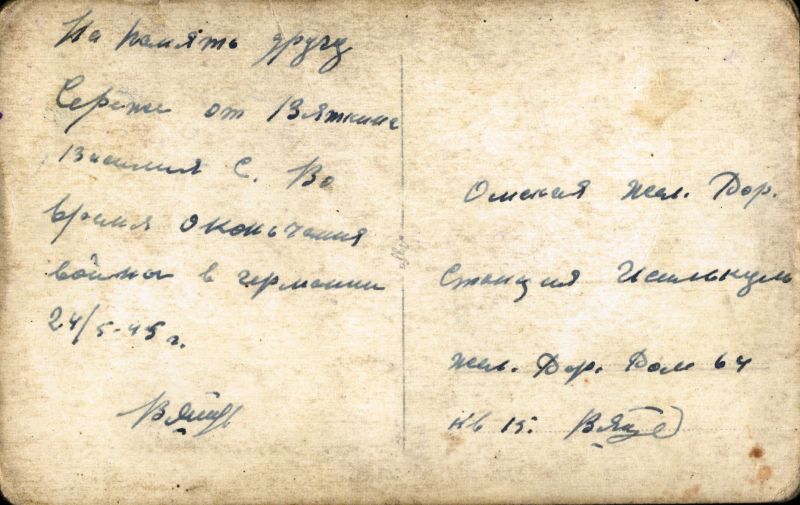 На память другу
Сереже от Вяткина
Василия С. Во
время оконьчания
войны в германии
24/5-45 г.
Омская жел. Дор.
Станция Исилькуль
жел. Дор. Дом 64
кв 15.